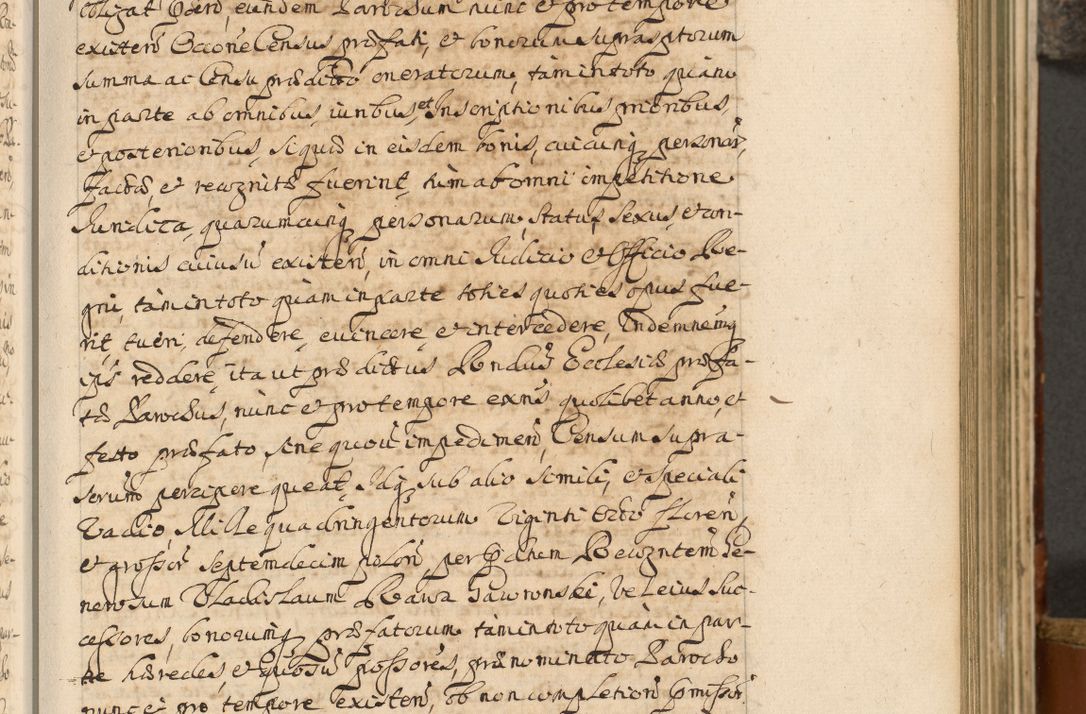 obligat eundem Parochum nunc et pro tempore
existen̄ Oc̄cōne Census prӕfati, et bonorum suprasc̄ptorum
summa ac Censu prӕdicto oneratorum, tàm in toto quàm
in parte ab omnibus iuribus, et Inscriptionibus prioribus,
et posterioribus, si quid in eisdem bonis, cuicunq personar̄,
factӕ, et recognitӕ fuerint, tum ab omni impetitione
Iuridica, quarumcunq personarum, status, sexus, et con-
ditionis cuiusvis existen̄, in omni Iudicio et Officio Re-
gni, tàm in toto quàm in parte toties quoties opus fue-
rit, tueri, defendere, euincere, et intercedere, Indemnemq
reddere, ita ut prӕdictus Rn̄dus Ecclesiӕ prӕfa-
tӕ Parochus, nunc et pro tempore exn̄s, quolibet anno, et
festo prӕfato, sine quouis impedimen̄, Censum supra-
percipere queat, Idq sub alio simili, et speciali
Vadio, Mille quadringentorum Viginti Octo floren̄,
et grossor̄ septemdecim polon̄, per Recogntem Ge-
nerosum Vladislaum Rawa Gawronski, vel eius Suc-
cessores, bonorumq prӕfatorum tàm in toto quàm in par-
te hӕredes, et quosvis possores, prӕnominato Parocho
nunc et pro tempore existen̄, ob non completion̄ prӕmissor̄